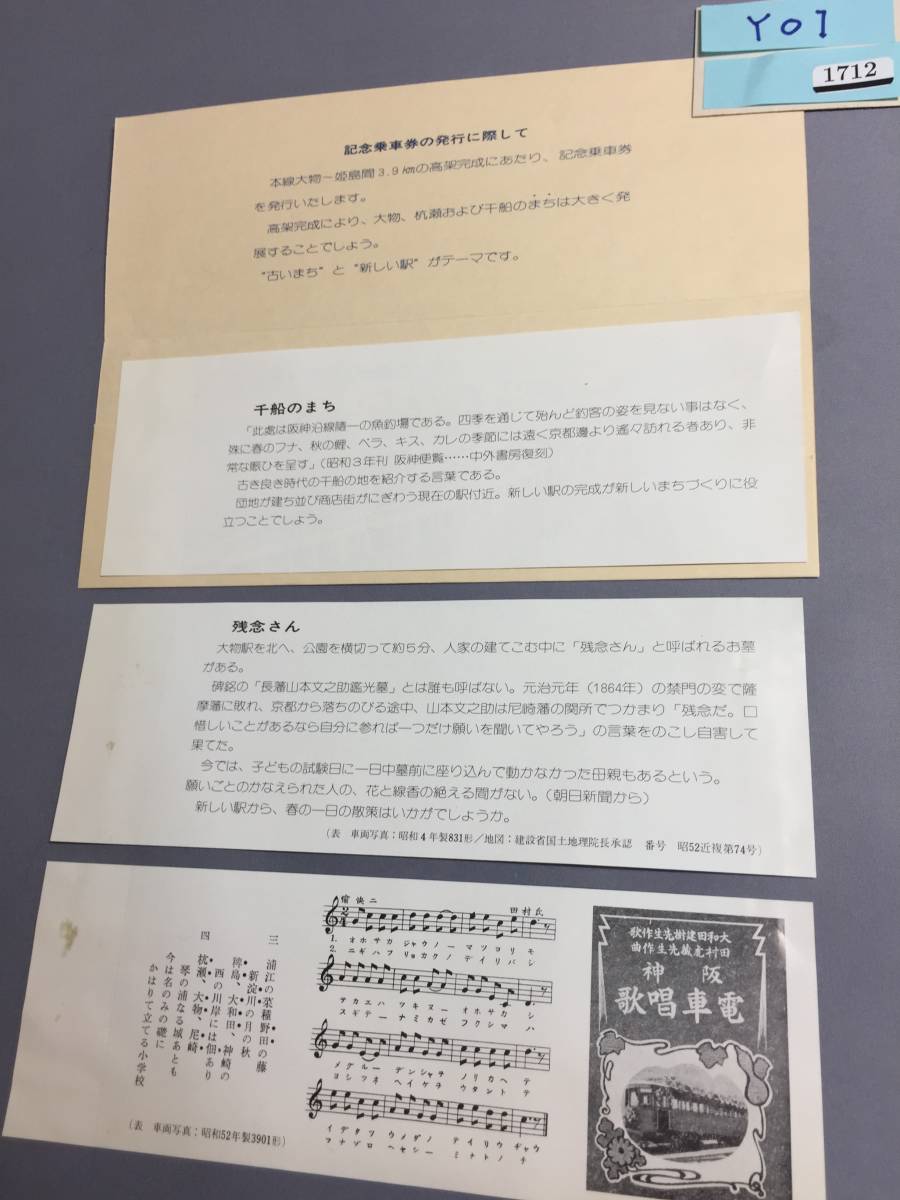 YO1
1712
記念乗車券の発行に際して
本線大物~姫島間3.9㎞の高架完成にあたり、記念乗車券
を発行いたします。
高架完成により、大物、杭瀬および千船のまちは大きく発
展することでしょう。
"古いまち"と"新しい駅"がテーマです。
千船のまち
「此處は阪神沿線隨一の魚釣場である。四季を通じて殆んど釣客の姿を見ない事はなく、
殊に春のフナ、秋の鯉、ベラ、キス、カレの季節には遠く京都邊より遙々訪れる者あり、非
常な賑ひを呈す」(昭和3年刊 阪神便覧……中外書房復刻)
古き良き時代の千船の地を紹介する言葉である。
団地が建ち並び商店街がにぎわう現在の駅付近。新しい駅の完成が新しいまちづくりに役
立つことでしょう。
残念さん
大物駅を北へ、公園を横切って約5分、人家の建てこむ中に「残念さん」と呼ばれるお墓
がある。
碑銘の「長藩山本文之助鑑光墓」とは誰も呼ばない。元治元年(1864年)の禁門の変で薩
摩藩に敗れ、京都から落ちのびる途中、山本文之助は尼崎藩の関所でつかまり「残念だ。口
惜しいことがあるなら自分に参れば一つだけ願いを聞いてやろう」の言葉をのこし自害して
果てた。
今では、子どもの試験日に一日中墓前に座り込んで動かなかった母親もあるという。
願いごとのかなえられた人の、花と線香の絶える間がない。(朝日新聞から)
新しい駅から、春の一日の散策はいかがでしょうか。
(表 車両写真:昭和4年製831形/地図:建設省国土地理院長承認 番号 昭52近複第74号)
大和田建樹先生作歌
田村虎蔵先生作曲
阪神
電車唱歌
愉快ニ
田村氏
1. オホサカ ジャウノー マツヨリモ
2. ニギハフ リョカクノ デイリバシ
タカエハ ツキヌー オホサカ シ
スギテー ナミカゼ フクシマ ハ
メグルー デンシャヲ ノリカヘ テ
ヨシツネ ヘイケヲ ウタント テ
イデタツ ウメダノ テイリウ ヂャウ
フナゾロ ヘセシー ミナトノ チ
三 浦江の菜種野田の藤
新淀川の月の秋
稗島、大和田、神崎の
西の川岸には佃あり
四 杭瀬、大物、尼崎
琴の浦なる城あとも
今は名のみの礎に
かはりて立てる小学校
(表 車両写真:昭和52年製3901形)